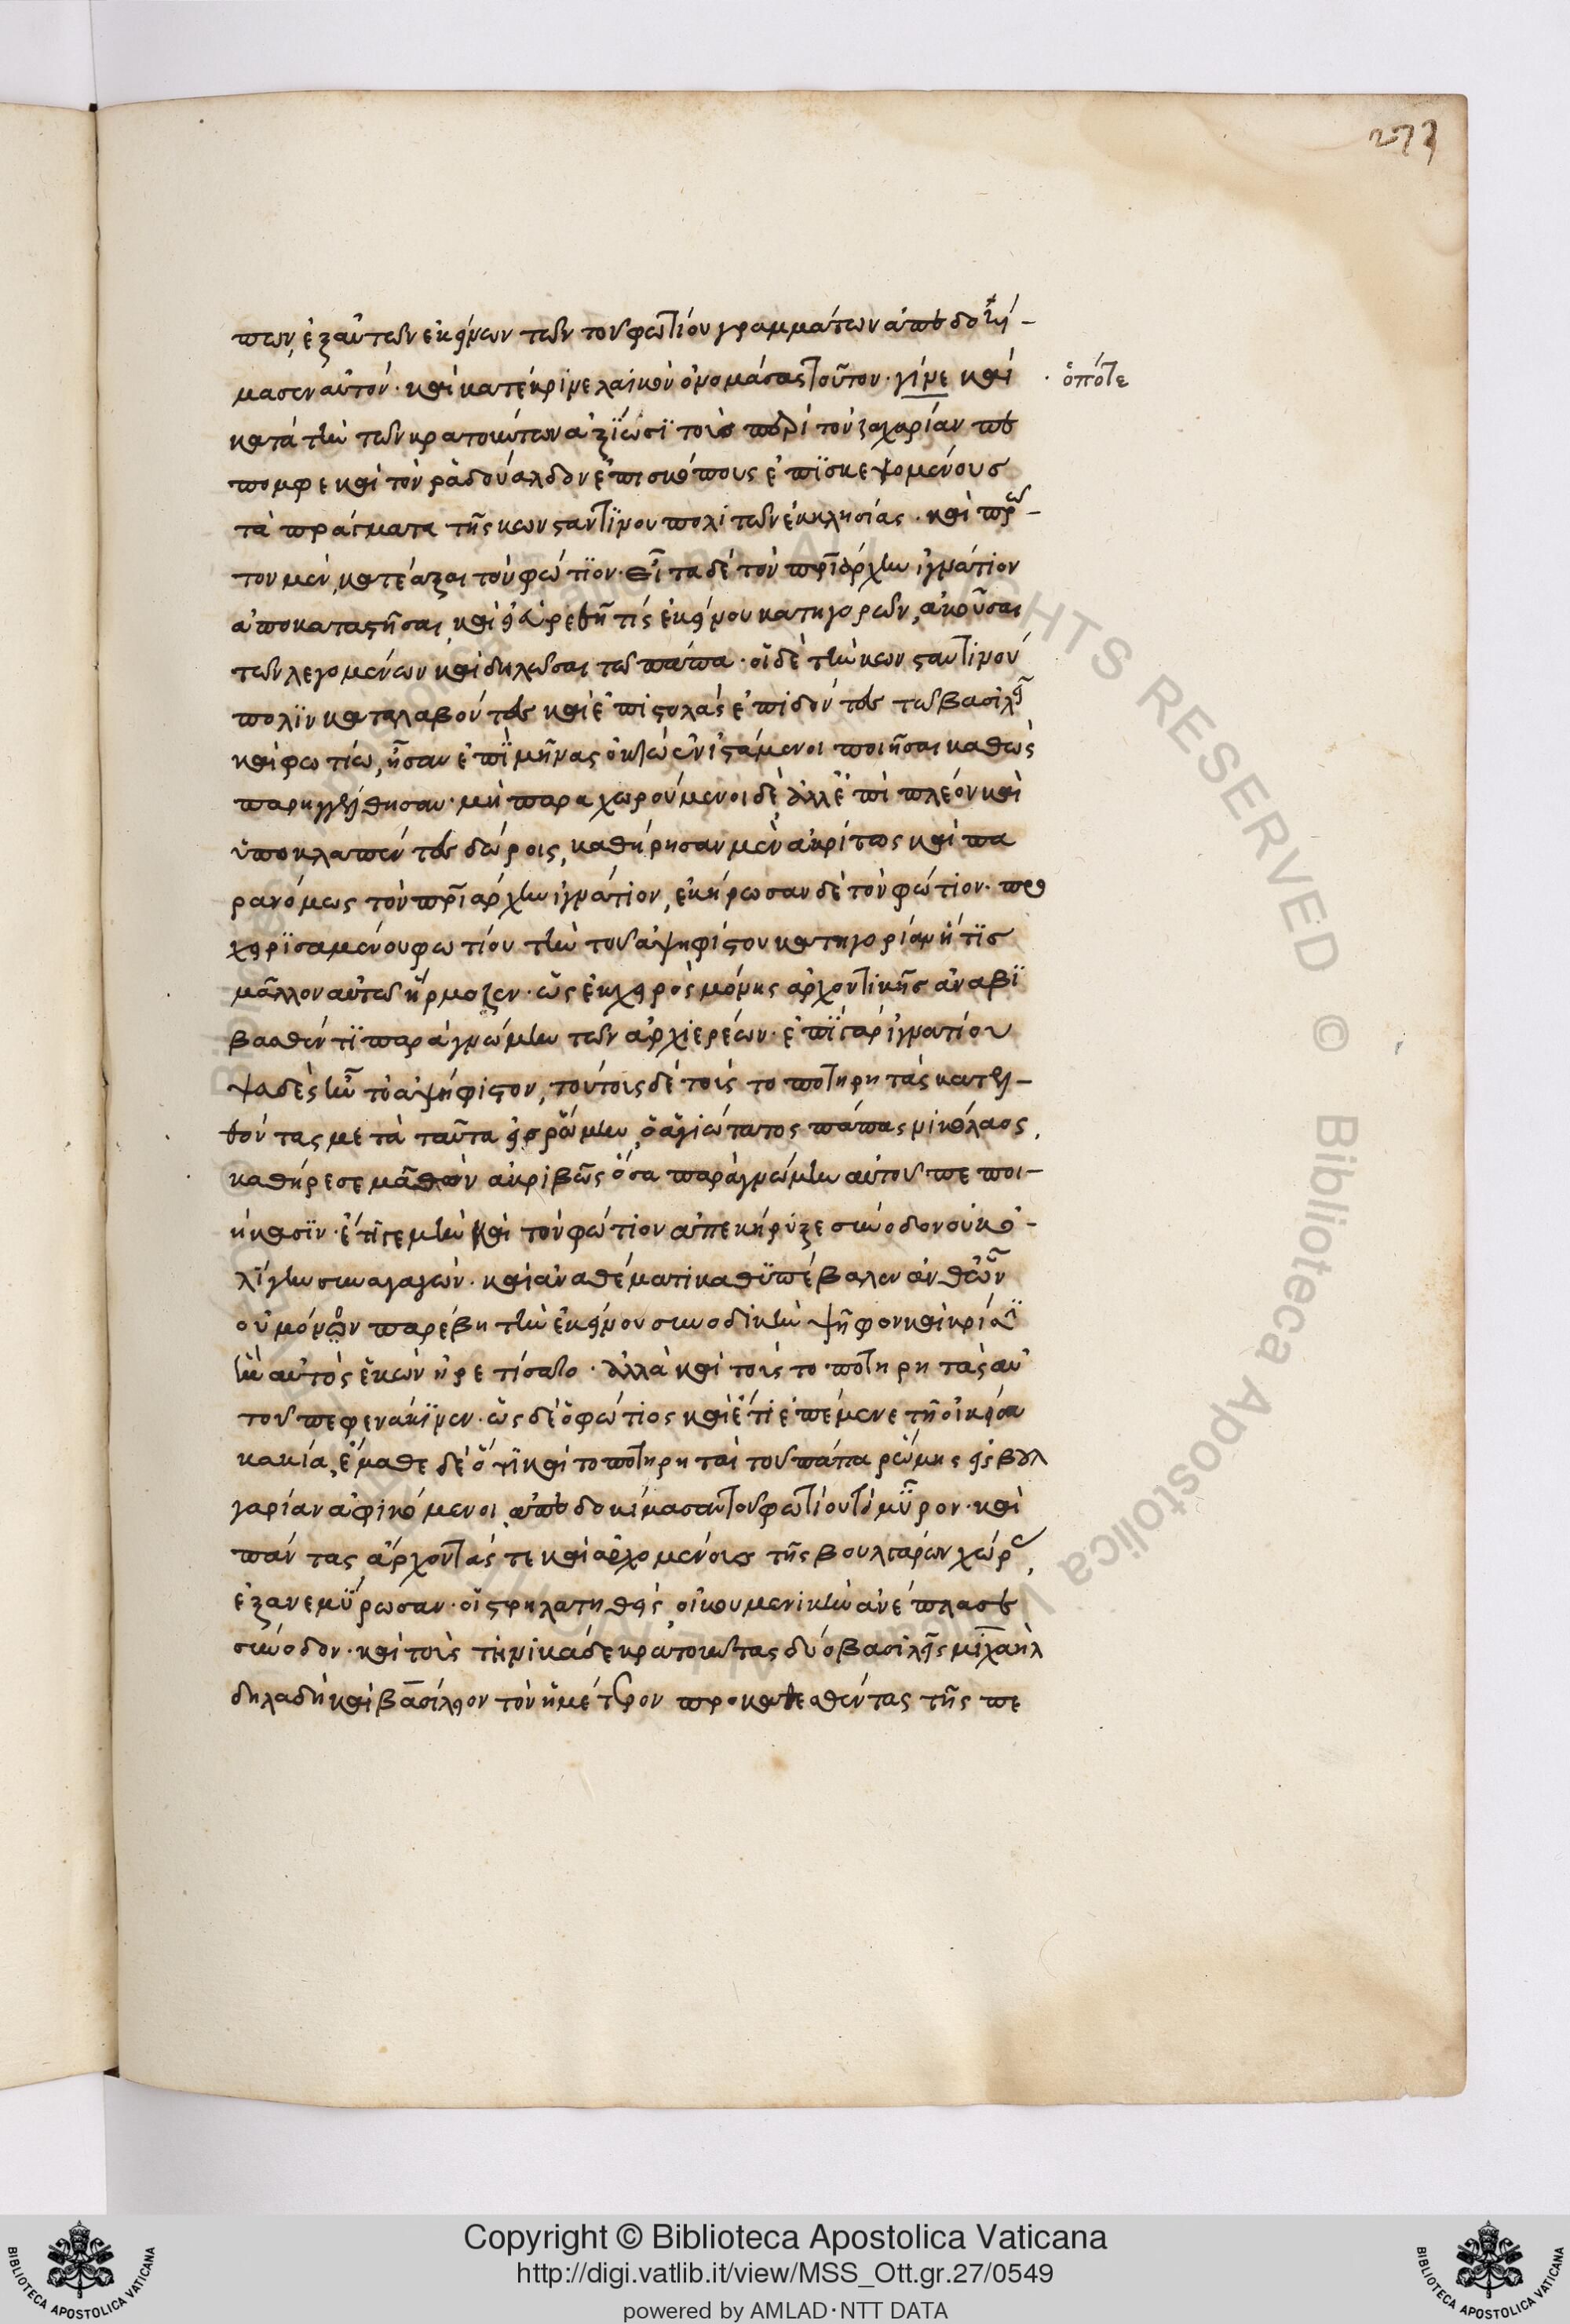 273
πων, ἐξ αὐτῶν ἐκείνων τῶν τοῦ φωτίου γραμμάτων ἀπεδοκί-
μασεν αὐτόν· καὶ κατέκρινε λαϊκὸν ὀνομάσας τοῦτον· γίνε καὶ
· ὁπότε
κατὰ τὴν τῶν κρατούντων ἀξίωσι τοὺς περὶ τὸν ζαχαρίαν
πομφε καὶ τὸν ῥαδούαλδον ἐπισκόπους ἐπισκεψομένους
τὰ πράγματα τῆς κωνσταντίνου πόλι τῶν ἐκκλησίας· καὶ πρῶ-
τον μὲν, κατεάξαι τὸν φώτιον· εἶτα δὲ τὸν πριάρχην ἰγνάτιον
ἀποκαταστῆσαι, καὶ εἰ εὑρεθῆ τίς ἐκείνου κατηγορῶν, ἀκοῦσαι
τῶν λεγομένων καὶ δηλῶσαι τῶ πάπα· οἱ δὲ τὴν κωνσταντίνου
πόλιν καταλαβόντες καὶ ἐπιστολὰς ἐπιδόντες τῶ βασιλεῖ
καὶ φωτίω, ἦσαν ἐπὶ μῆνας ὀκτὼ ἐνιστάμενοι ποιῆσαι καθὼς
παρηγγέλθησαν· μὴ παραχωρούμενοι δὲ ἀλλ' ἐπὶ πλέον καὶ
ὑποκλαπέντες δώροις, καθήρησαν μὲν ἀκρίτως καὶ πα
ρανόμως τὸν πριάρχην ἰγνάτιον, ἐκήρωσαν δὲ τὸν φώτιον· προ
χειρισαμένου φωτίου τὴν τοῦ ἀψηφίστου κατηγορίαν ἥτις
μᾶλλον αὐτῶ ἥρμοζεν· ὡς ἐκ χειρὸς μόνης ἀρχοντικῆς ἀναβι
βασθέντι παρὰ γνώμην τῶν ἀρχιερέων· ἐπὶ γὰρ ἰγνατίου
ψαδὲς ἦν τὸ ἀψήφιστον, τούτοις δὲ τοῖς τοποτηρητὰς κατελ-
θόντας μετὰ ταῦτα εἰς ῥώμην, ὁ ἁγιώτατος πάπας νικόλαος,
καθήρεσε μαθὼν ἀκριβῶς ὅσα παρὰ γνώμην αὐτοῦ πεποι-
ήκασιν· ἔτι γε μὴν καὶ τὸν φώτιον ἀπεκήρυξε σύνοδον οὐκ ὀ-
λίγην συναγαγών· καὶ ἀναθέματι καθυπέβαλεν ἀνθ' ὧν
οὐ μόνον παρέβη τὴν ἐκείνου συνοδικὴν ψῆφον καὶ κρίσι
ἣν αὐτὸς ἑκὼν ἠρετίσατο· ἀλλὰ καὶ τοὺς τοποτηρητὰς αὐ
τοῦ πεφενάκικεν· ὡς δὲ ὁ φώτιος καὶ ἔτι ἐπέμενε τῆ οἰκεία
κακία, ἔμαθε δὲ ὅτι καὶ τοποτηρηταὶ τοῦ πάπα ῥώμης εἰς βουλ
γαρίαν ἀφικόμενοι, ἀπεδοκίμασαν τοῦ φωτίου τὸ μῦρον· καὶ
πάντας ἄρχοντάς τε καὶ ἀρχομένους τῆς βουλγάρων χώρας,
ἐξανεμύρωσαν· οἰστρηλατηθεὶς οἰκουμενικὴν ἀνέπλασε
σύνοδον· καὶ τοὺς τηνικάδε κρατοῦντας δύο βασιλεῖς μιχαὴλ
δηλαδὴ καὶ βασίλειον τὸν ἡμέτερον προκατεσθέντας τῆς πε
Copyright © Biblioteca Apostolica Vaticana
http://digi.vatlib.it/view/MSS_Ott.gr.27/0549
powered by AMLAD·NTT DATA